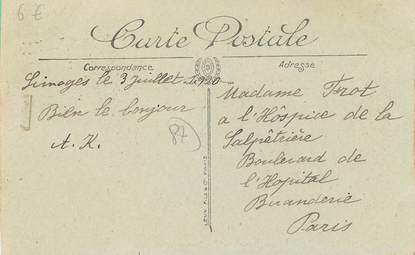 6 €
Carte Postale
Correspondance
Adresse
Limoges le 3 Juillet 1920
Bien le bonjour
A. K.
87
Madame Frot
a l'Hôspice de la
Salpêtrière
Boulevard de
l'Hopital
Buanderie
Paris